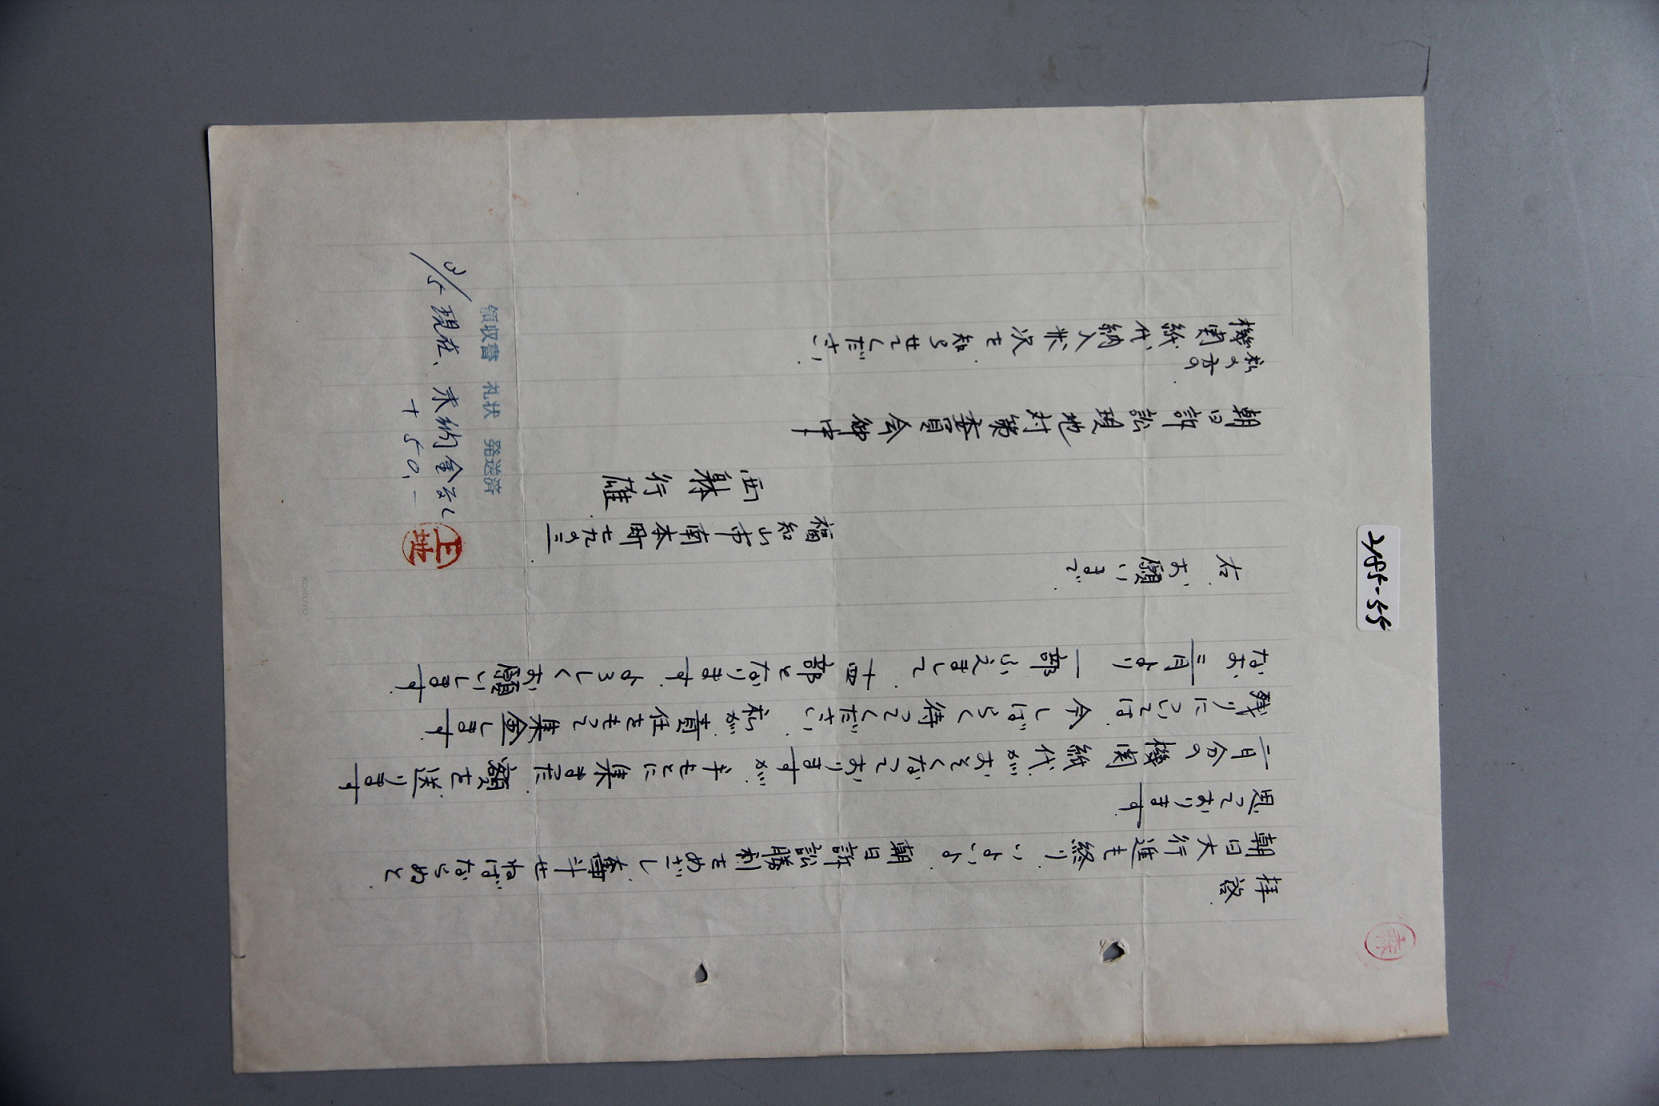 拝啓
朝日大行進も終り、いよいよ、朝日訴訟勝利をめざし奮斗せねばならぬと
思っております
二月分の機関紙代がおそくなっておりますが、手もとに集また額を送ります
残りについては、今しばらく待ってください、私が責任をもって集金します
なお、三月より一部ふえまして、十四部となります、よろしくお願いします
右、お願いまで
福知山市南本町七九の三
西躰行雄
朝日訴訟現地対策委員会御中
私の方の
機関紙代納入状況を知らせてください
領収書 礼状 発送済
3/5 現在、未納金なし
+50.-
2485-55